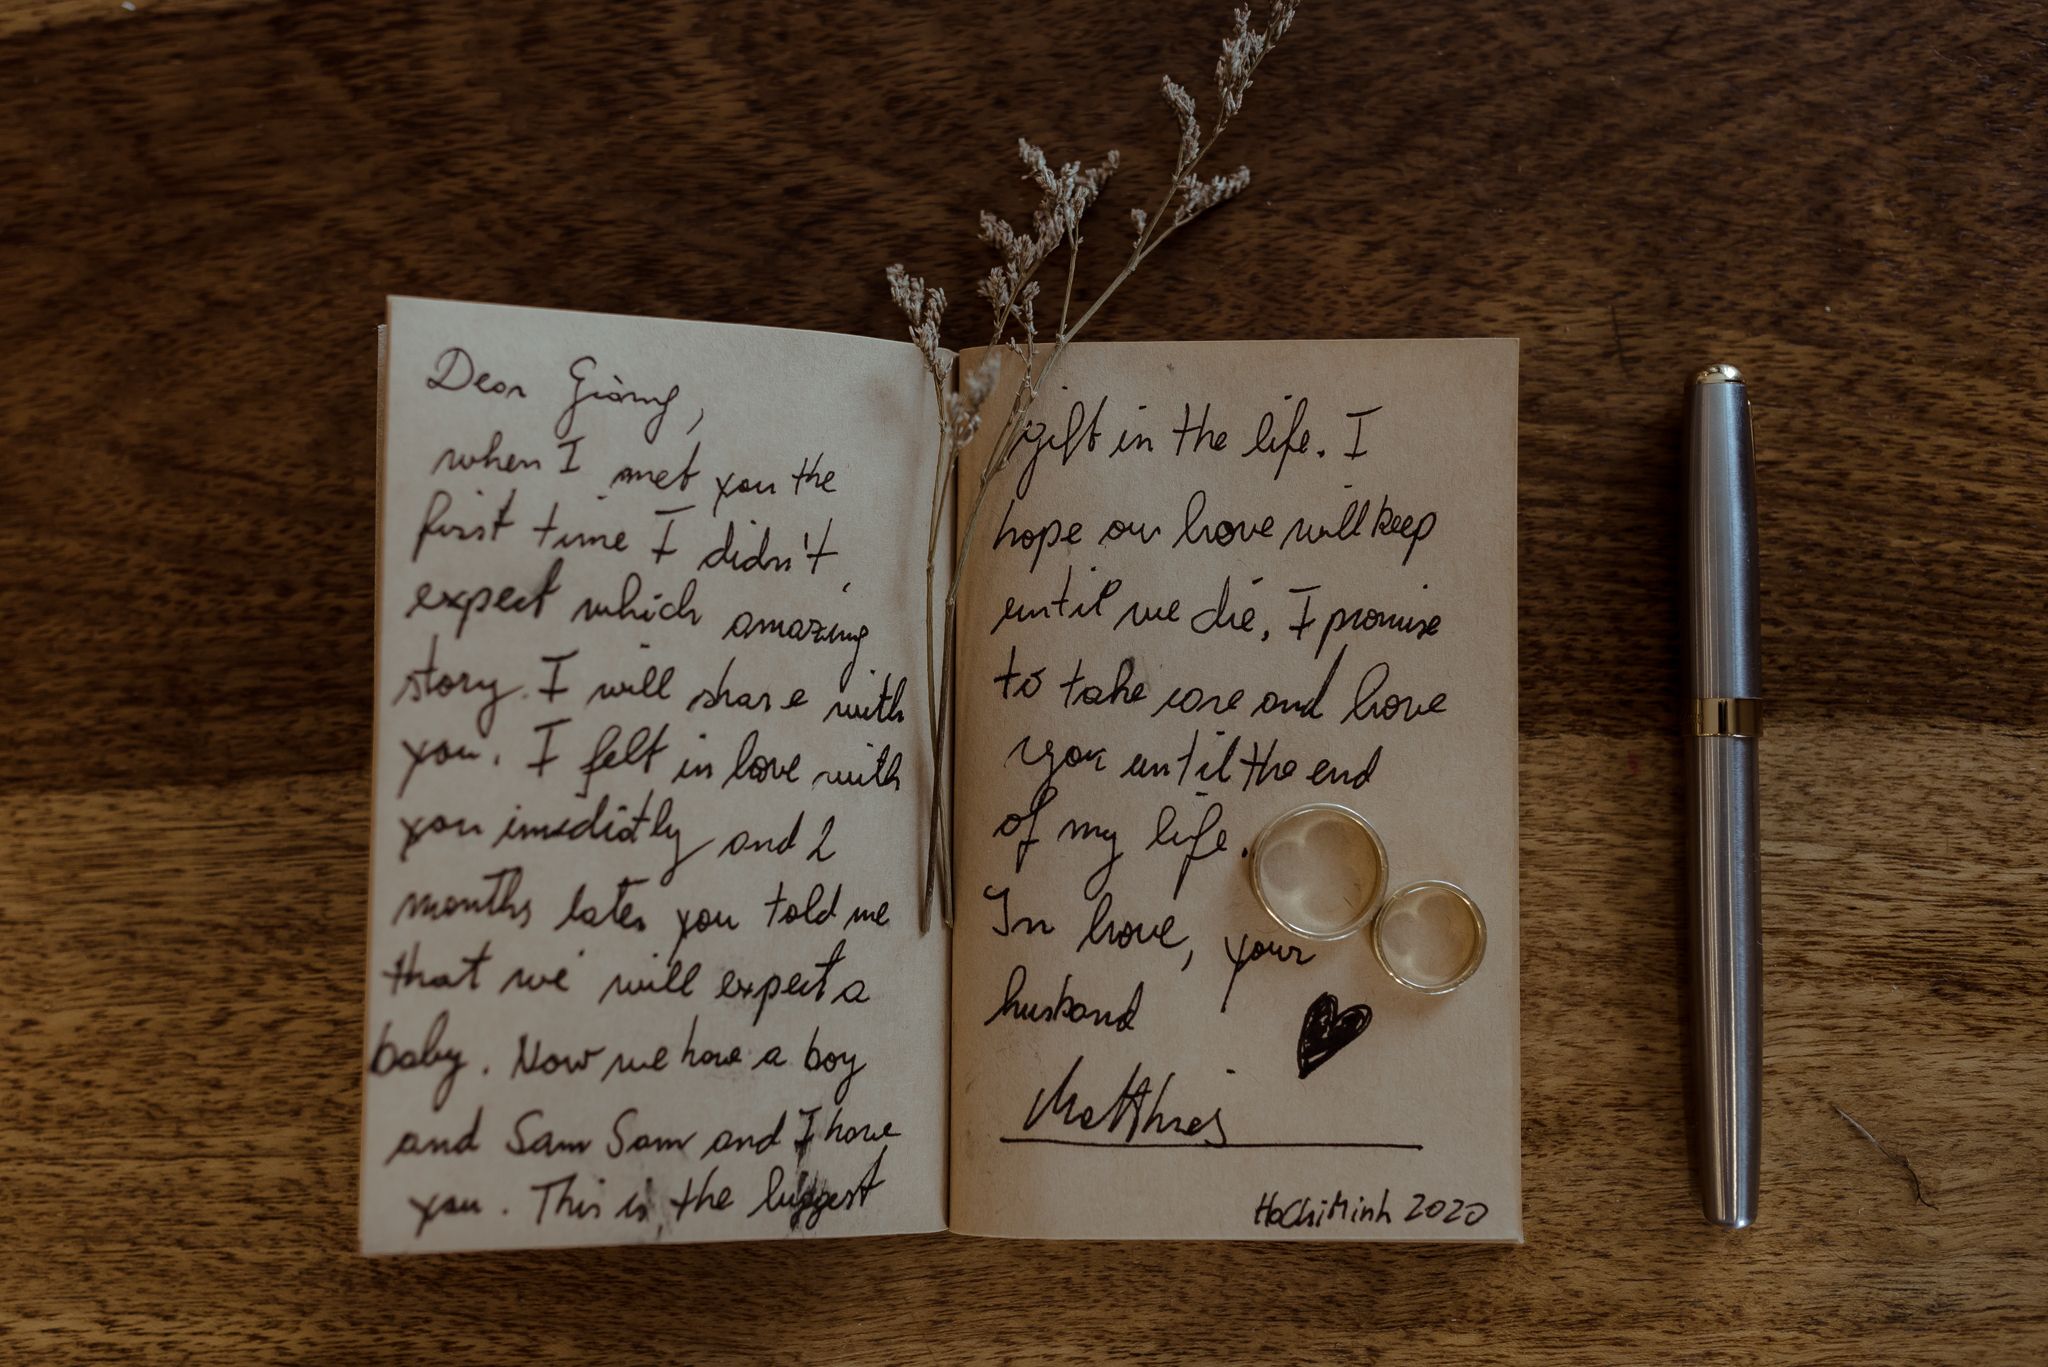 Dear Giang,
when I met you the
first time I didn't
expect which amazing
story. I will share with
you. I felt in love with
you imediatly and 2
months later you told me
that we will expect a
baby. Now we have a boy
and Sam Sam and I have
you. This is the biggest
gift in the life. I
hope our love will keep
until we die. I promise
to take care and love
you until the end
of my life.
In love, your
husband
Matthias
HoChiMinh 2020